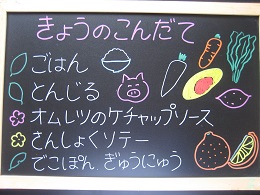 きょうのこんだて
ごはん
とんじる
オムレツのケチャップソース
さんしょくソテー
でこぽん ぎゅうにゅう